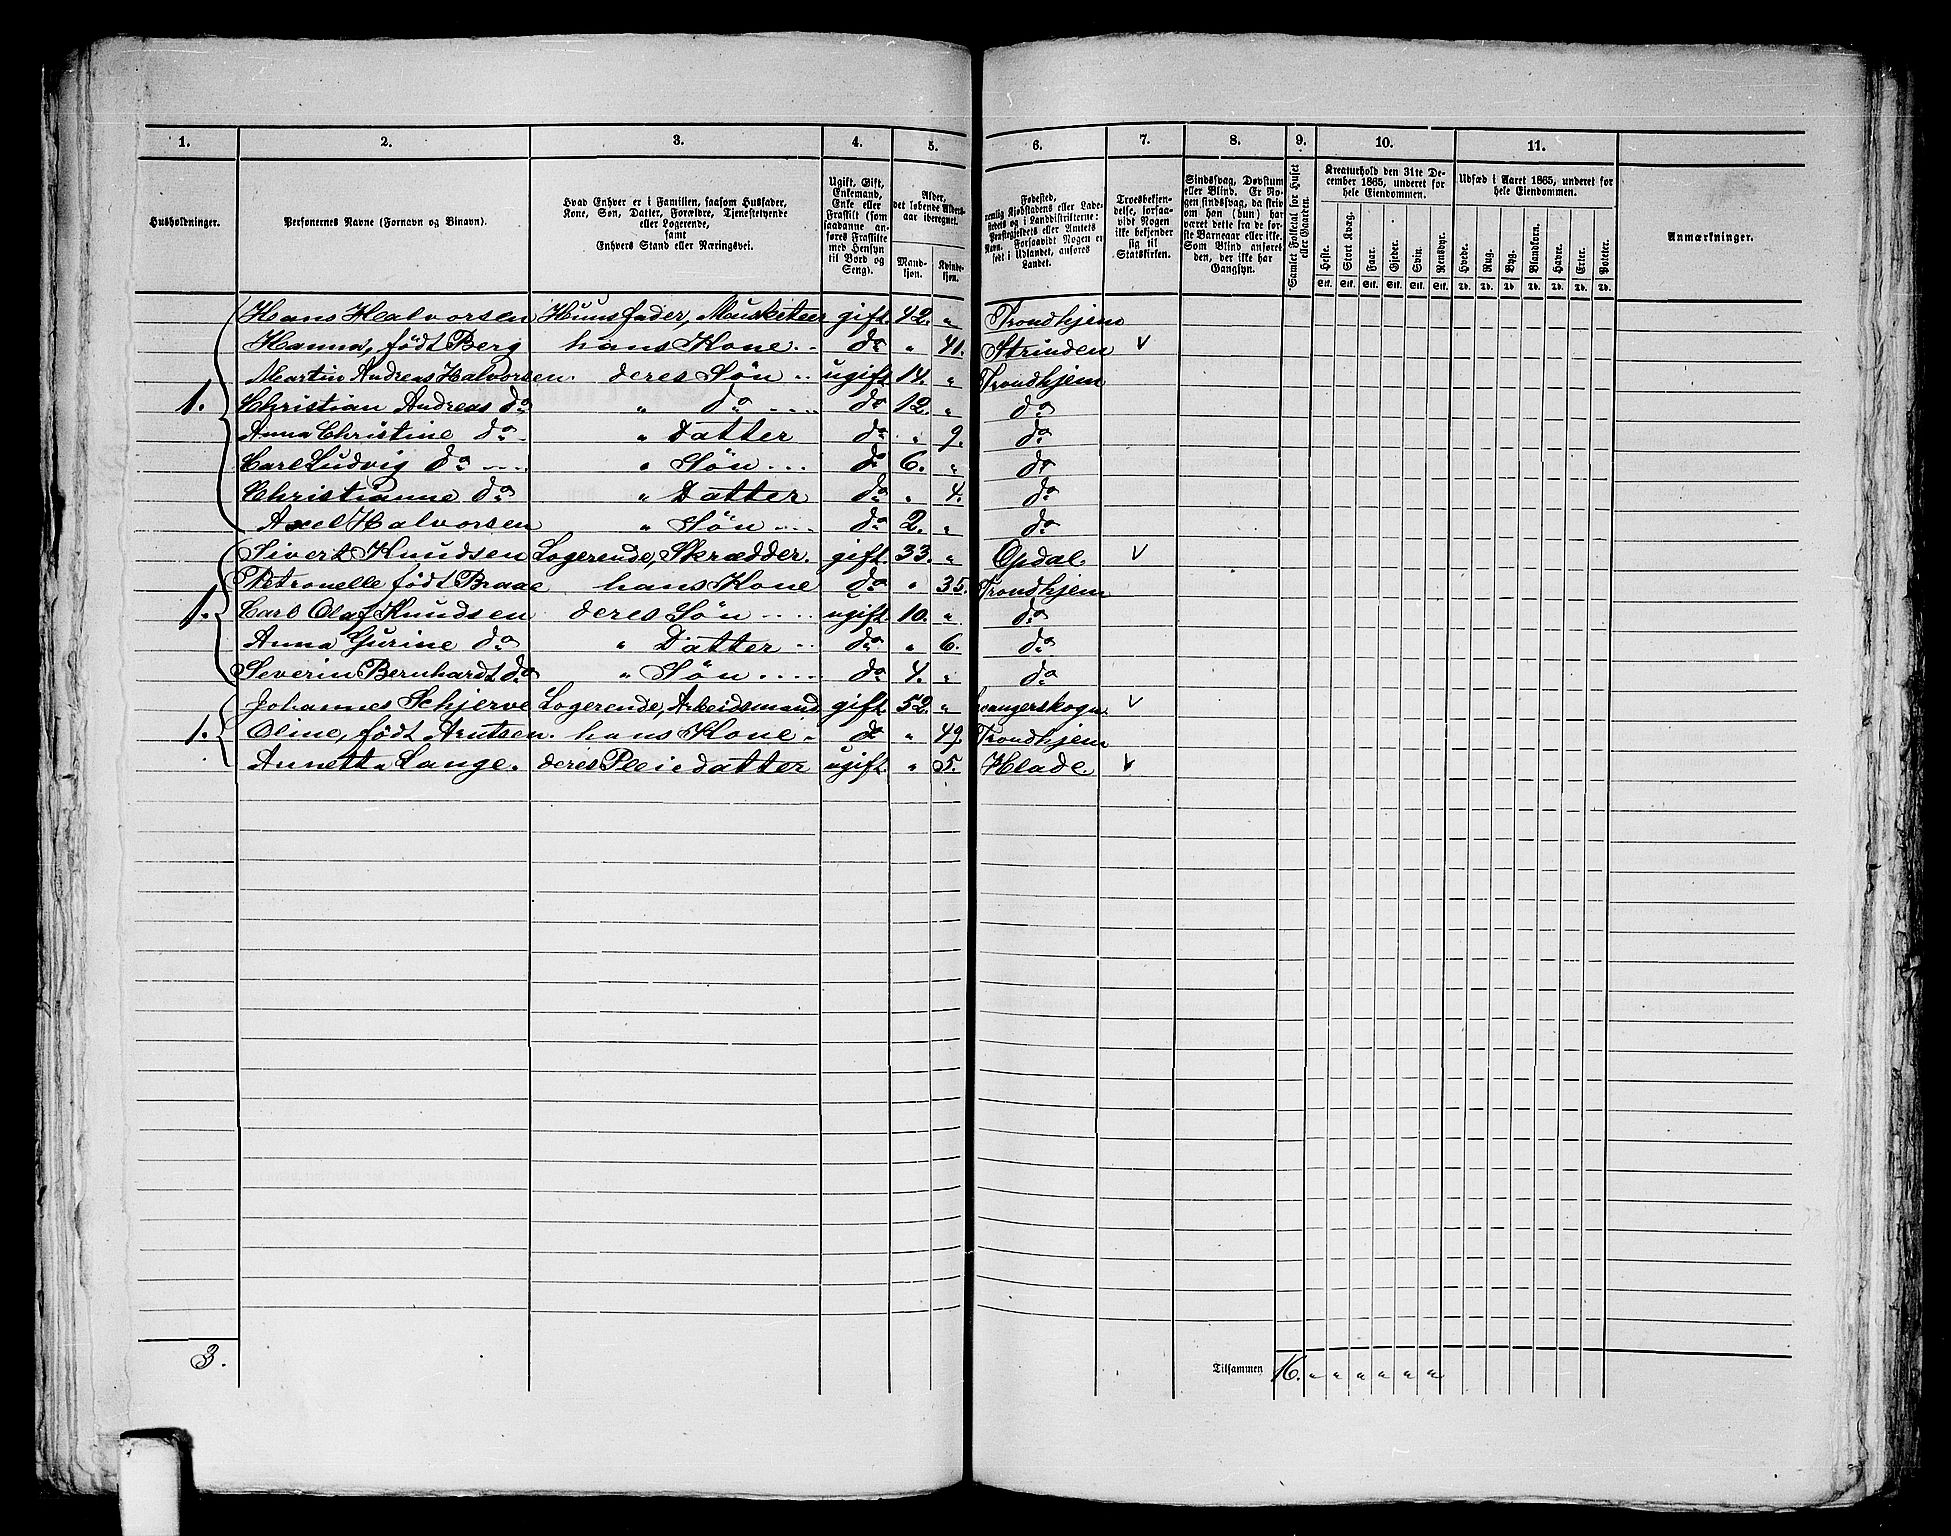 1. 2. 3. 4. 5. 6. 7. 8. 9. 10. 11.
Husholdninger.
Personernes Navne (Fornavn og Binavn).
Hvad Enhver er i Familien, saasom Husfader,
Kone, Søn, Datter, Forældre, Tjenestetyende
eller Logerende,
samt
Enhvers Stand eller Næringsvei.
Ugift, Gift,
Enkemand,
Enke eller
Fraskilt (som
saadanne an-
føres Fraskilte
med Hensyn
til Bord og
Seng).
Alder,
det løbende Alders-
aar iberegnet.
Mand-
kjøn.
Kvinde-
kjøn.
Fødested,
nemlig Kjøbstadens eller Lade-
stedets og i Landdistrikterne:
Præstegjeldets eller Amtets
Navn. Forsaavidt Nogen er
født i Udlandet, anføres
Landet.
Troesbekjen-
delse, forsaa-
vidt Nogen
ikke bekjender
sig til
Statskirken.
Sindssvag, Døvstum
eller Blind. Er No-
gen sindssvag, da skriv
om han (hun) har
været dette fra de før-
ste Barneaar eller ikke.
Som Blind anføres
den, der ikke har
Gangsyn.
Samlet Folketal for Huset
eller Gaarden.
Kreaturhold den 31te De-
cember 1865, underet for
hele Eiendommen.
Heste. Stort Kvæg. Faar. Gjeder. Svin. Rensdyr.
Stk. Stk. Stk. Stk. Stk. Stk.
Udsæd i Aaret 1865, underet for
hele Eiendommen.
Hvede. Rug. Byg. Blandkorn. Havre. Erter. Poteter.
Td. Td. Td. Td. Td. Td. Td.
Anmærkninger.
Hans Halvorsen Huusfader, Musketeer gift. 42. " Trondhjem
Hanna, født Berg hans Kone do " 41. Strinden v
Martin Andreas Halvorsen. deres Søn ugift. 14. " Trondhjem
1. Christian Andreas do " do do 12. " do
Anna Christine do " Datter do " 9. do
Carl Ludvig do " Søn do 6. " do
Christianne do " Datter do " 4. do
Axel Halvorsen " Søn do 2. " do
Sivert Knudsen Logerende, Skrædder. gift. 33. " Opdal. v
Petronelle født Braae hans Kone do " 35. Trondhjem
1. Carl Olaf Knudsen deres Søn ugift. 10. " do
Anna Gurine do " Datter do " 6. do
Severin Bernhardt do " Søn do 4. " do
Johannes Schjerve Logerende, Arbeidsmand gift. 52. " v
1. Oline, født Arntsen. hans Kone do " 49 Trondhjem
Annetta Lange. deres Pleiedatter ugift. " 5. Hlade. v
3.
Tilsammen 16. " " " " " "